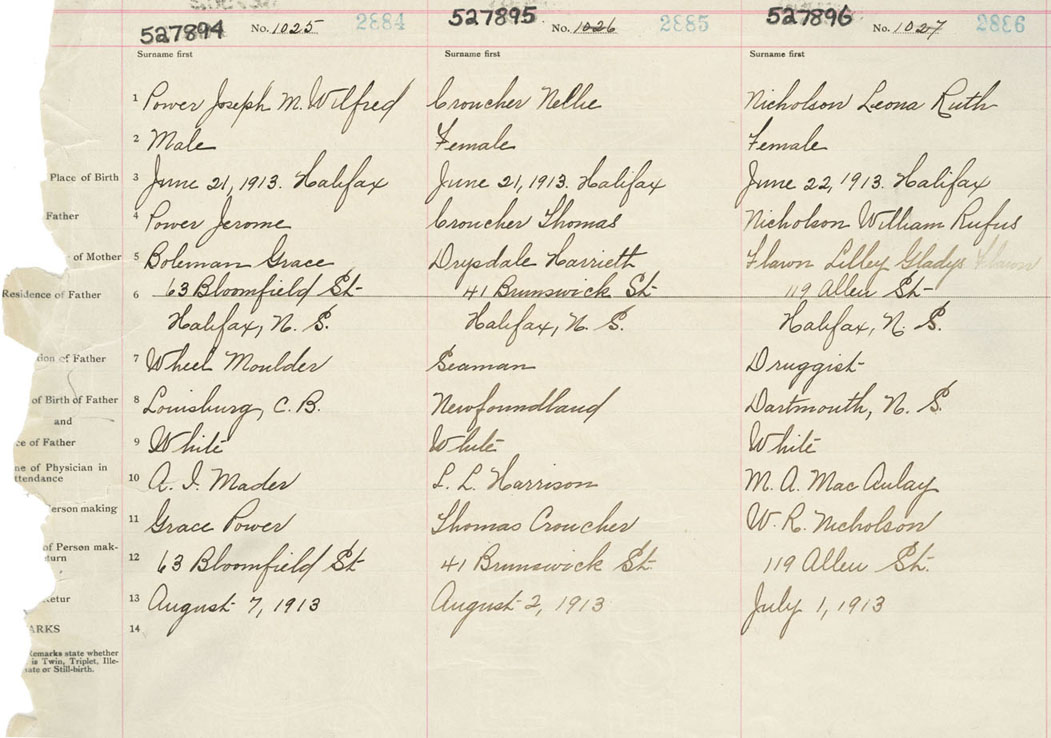 527894 No. 1025 2884 527895 No. 1026 2885 527896 No. 1027 2886
Surname first Surname first Surname first
1 Power Joseph M. Wilfred Croucher Nellie Nicholson Leona Ruth
2 Male Female Female
Place of Birth 3 June 21, 1913. Halifax June 21, 1913. Halifax June 22, 1913. Halifax
Father 4 Power Jerome Croucher Thomas Nicholson William Rufus
of Mother 5 Boleman Grace Drysdale Harrieth Flawn Lilley Gladys Flawn
Residence of Father 6 63 Bloomfield St 41 Brunswick St 119 Allen St
Halifax, N. S. Halifax, N. S. Halifax, N. S.
ion of Father 7 Wheel Moulder Seaman Druggist
of Birth of Father 8 Louisburg, C. B. Newfoundland Dartmouth, N. S.
and
ce of Father 9 White White White
ne of Physician in
ttendance 10 A. I. Mader L. L. Harrison M. A. Mac Aulay
erson making 11 Grace Power Thomas Croucher W. R. Nicholson
of Person mak-
turn 12 63 Bloomfield St. 41 Brunswick St. 119 Allen St.
Retur 13 August 7, 1913 August 2, 1913 July 1, 1913
ARKS 14
Remarks state whether
is Twin, Triplet, Ille-
ate or Still-birth.